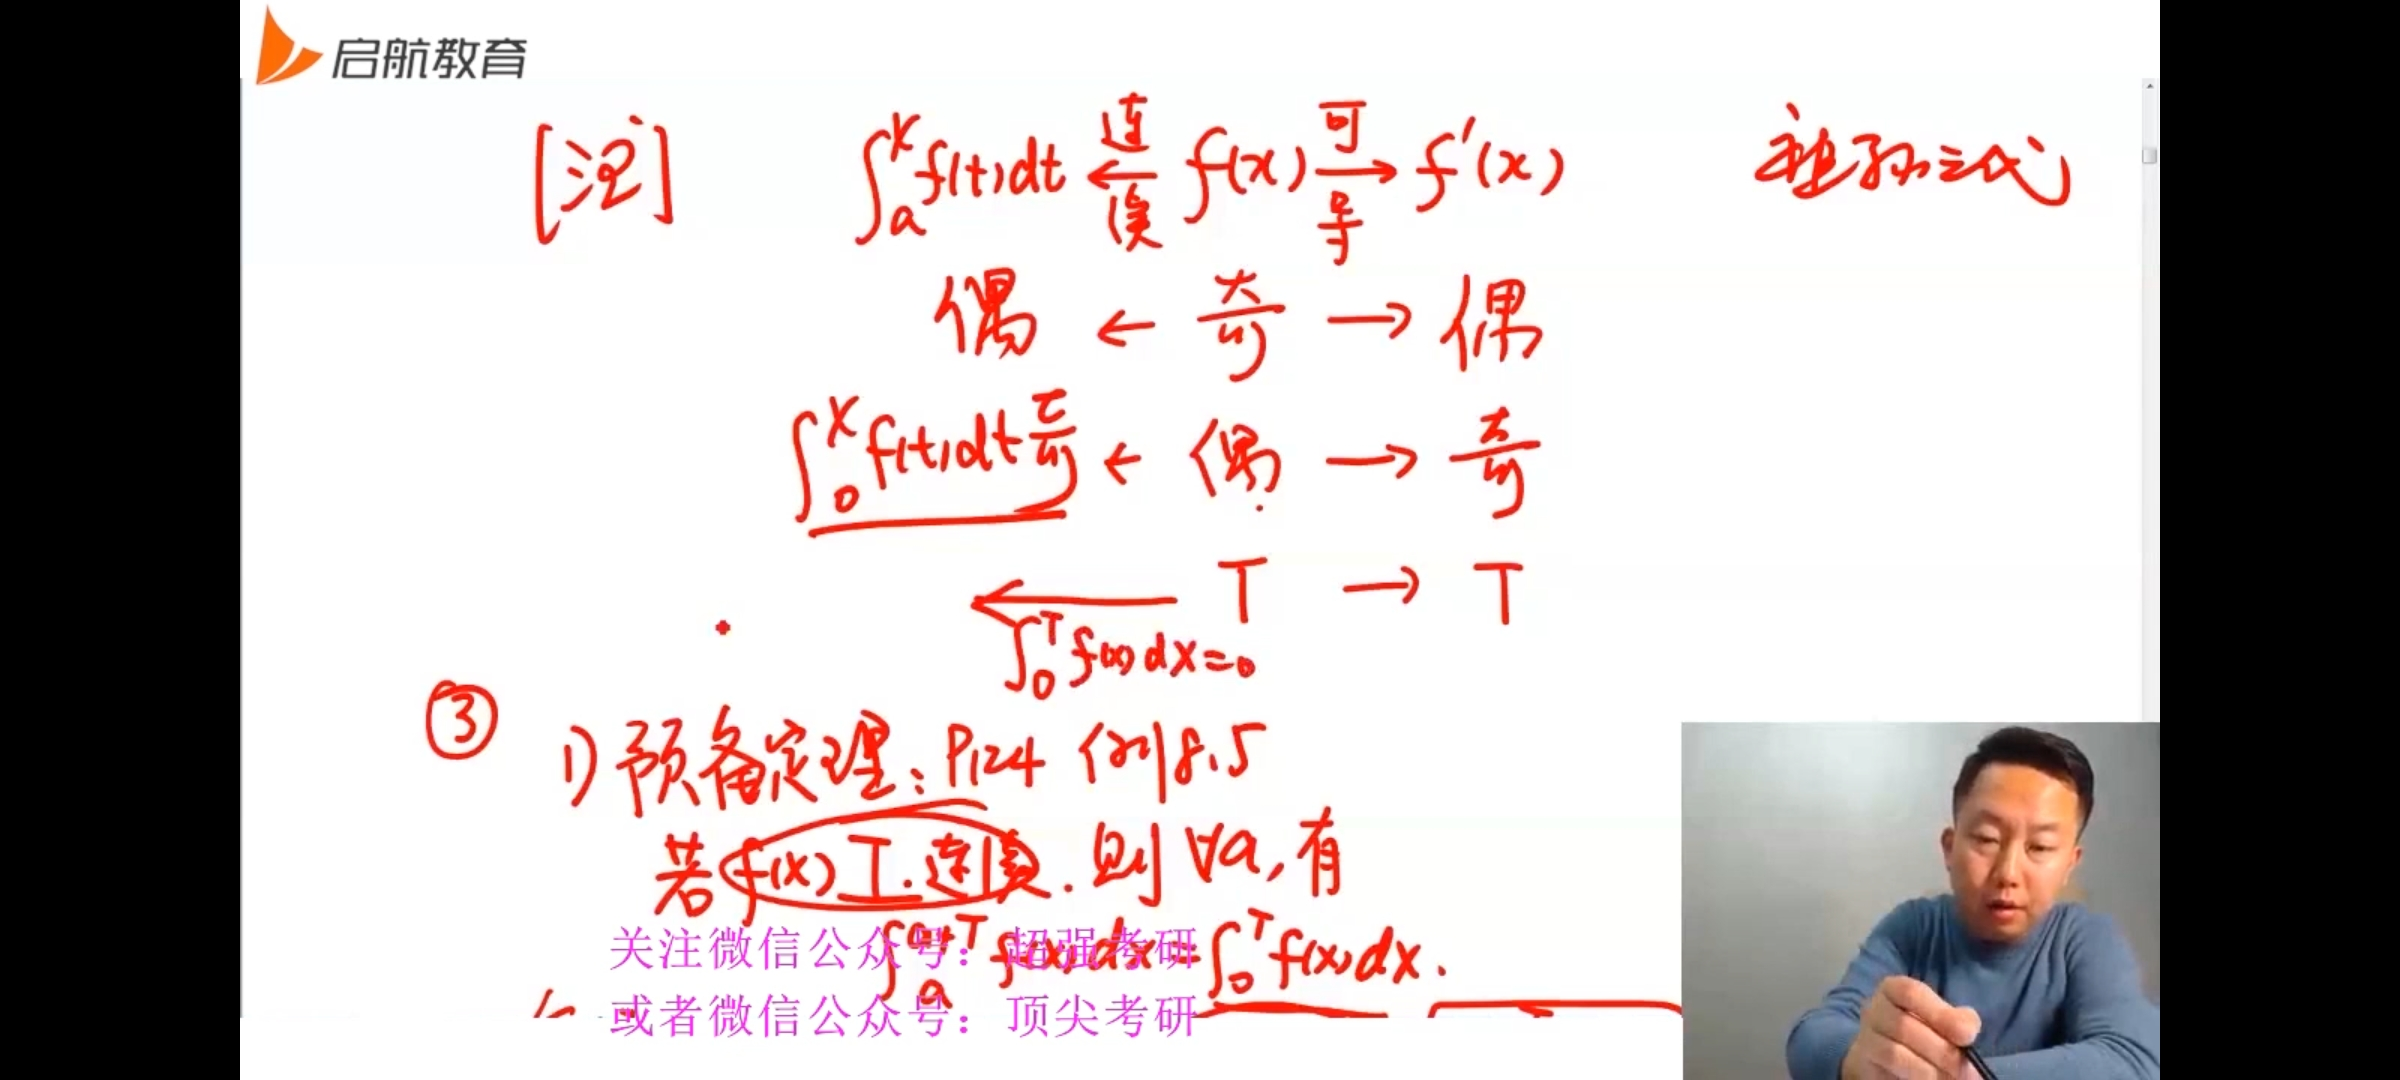 启航教育
[注] ∫ₐˣf(t)dt ←连续 f(x) 可导→ f′(x) 祖孙三代
偶 ← 奇 → 偶
∫₀ˣf(t)dt奇 ← 偶 → 奇
← T → T
∫₀ᵀf(x)dx=0
③ 1)预备定理：P124 例8.5
若f(x)T.连续.则∀a,有
∫ₐᵃ⁺ᵀf(x)dx=∫₀ᵀf(x)dx.
关注微信公众号：超强考研
或者微信公众号：顶尖考研